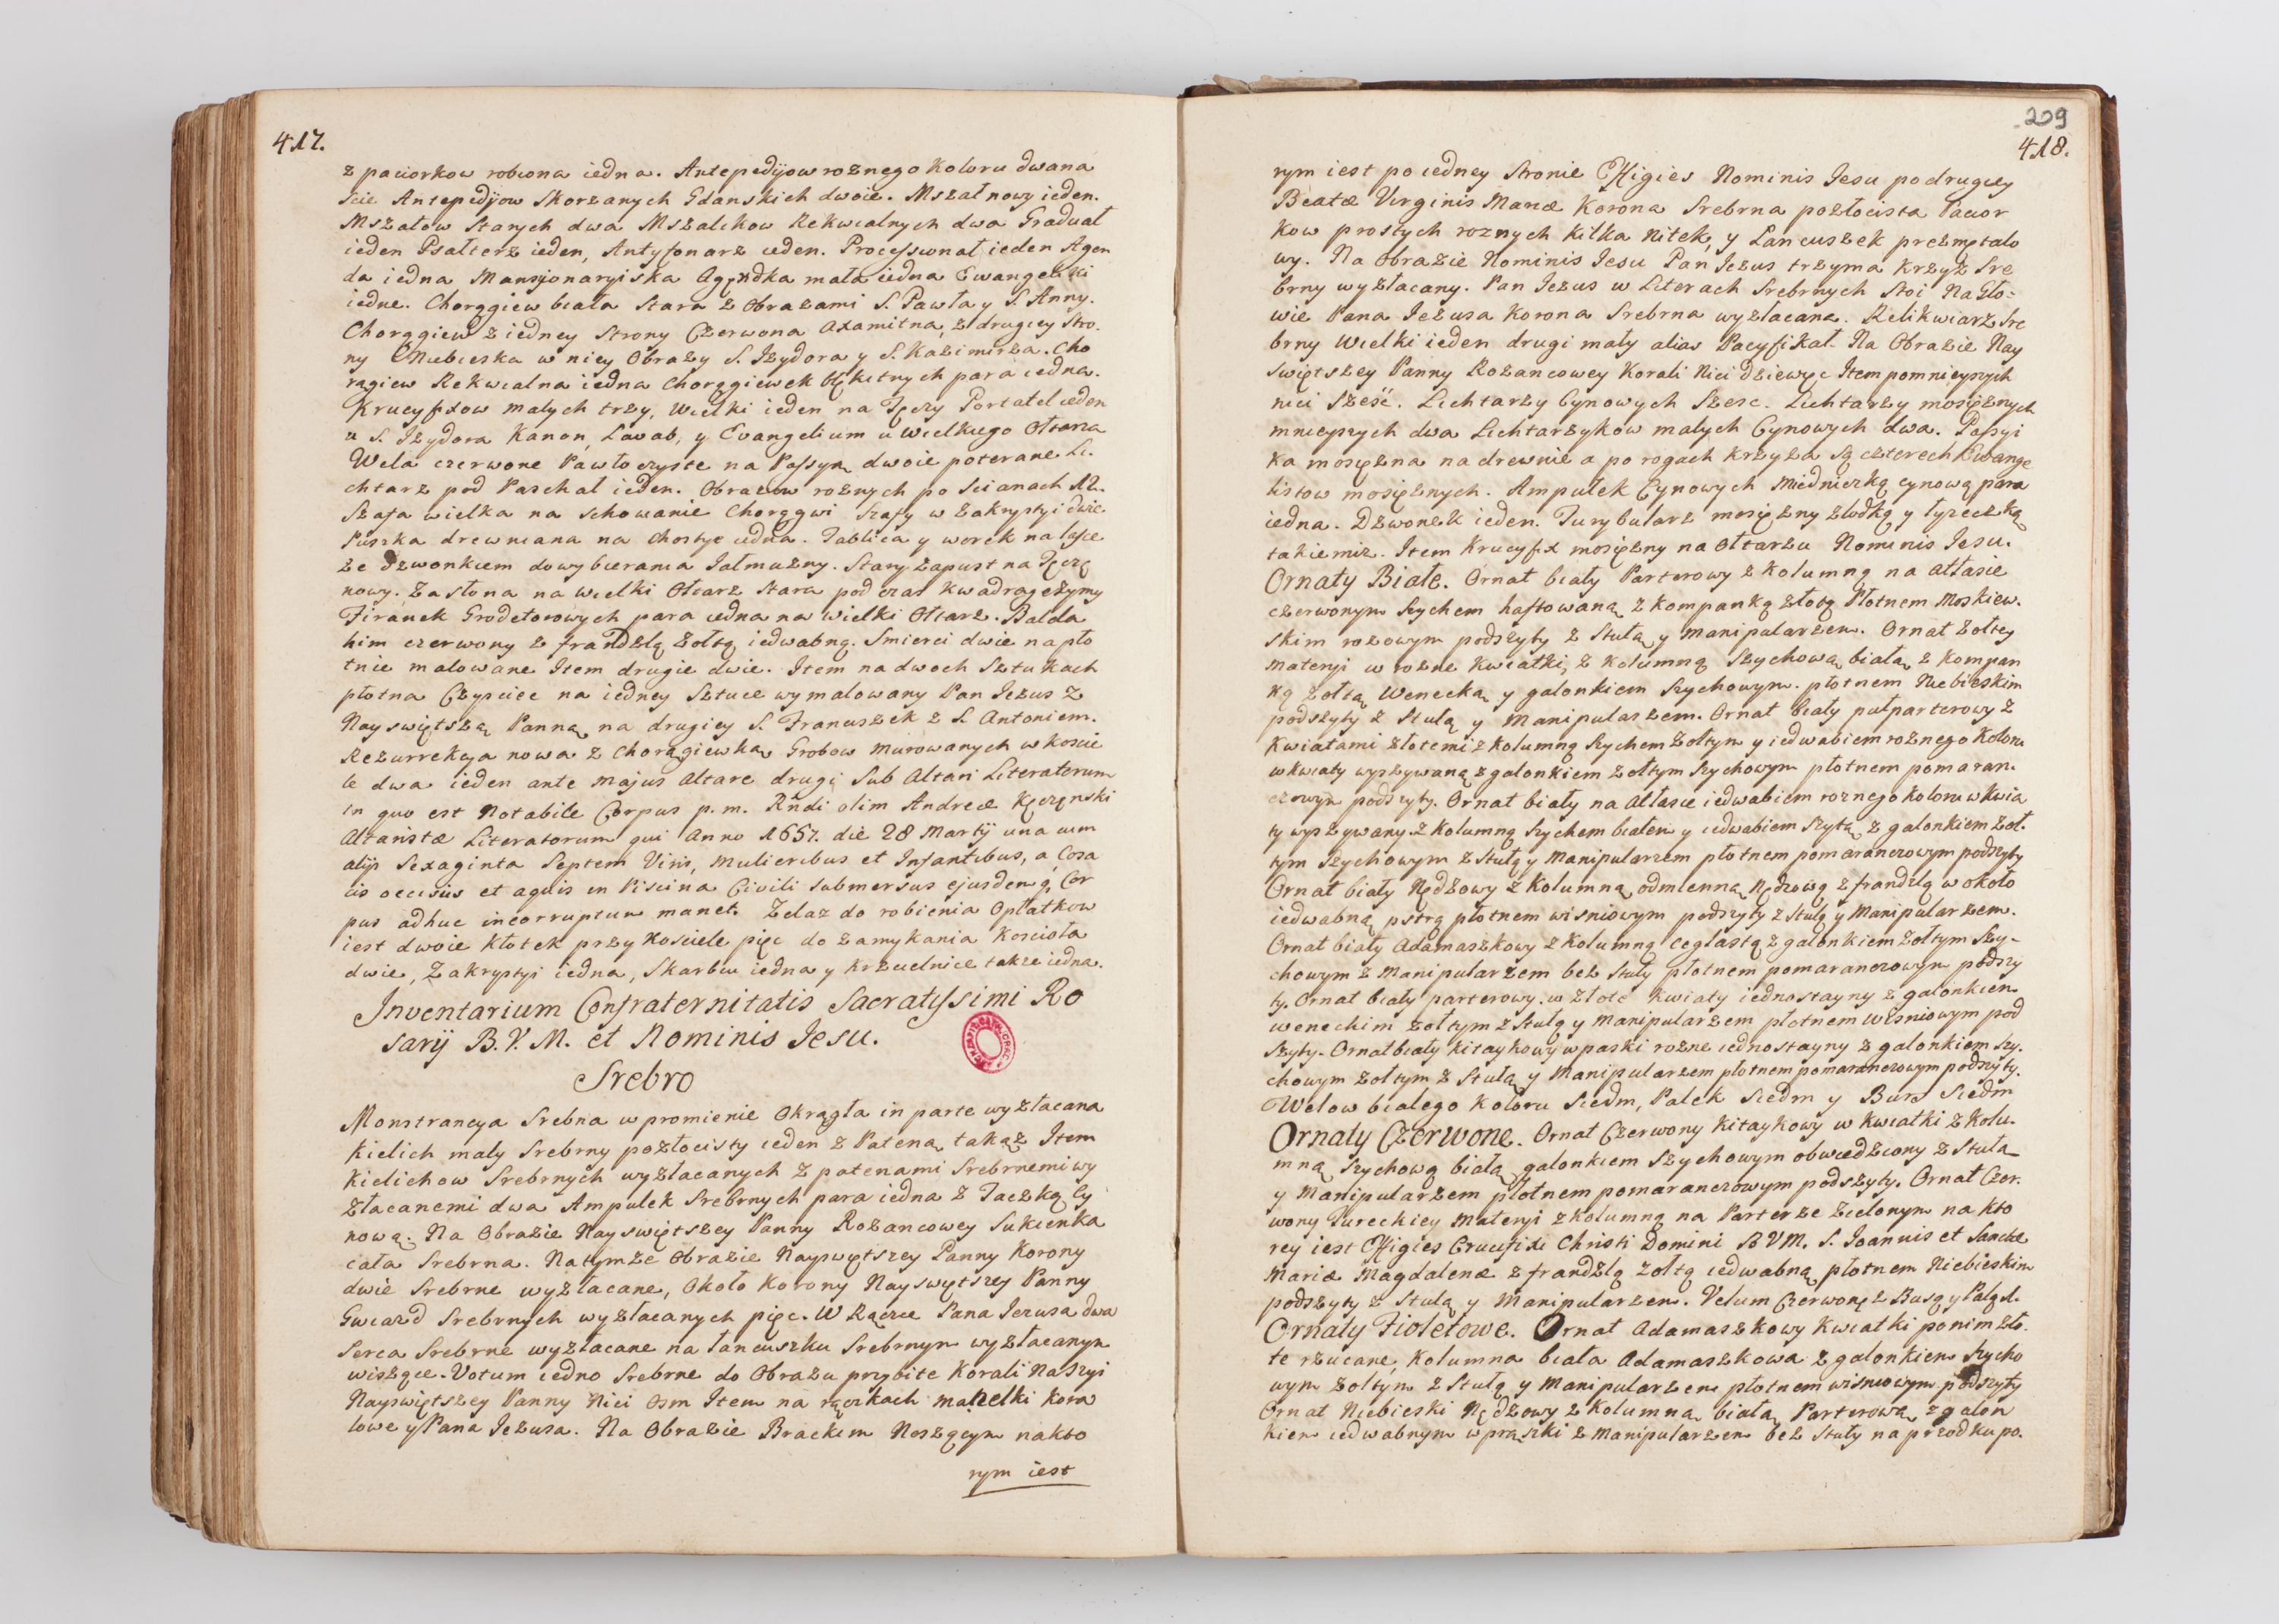 417.
z paciorkow robiona iedna. Antepedijow roznego Koloru dwana
scie Antepedijow Skorzanych Gdanskich dwoie. Mszał nowy ieden.
Mszałow Starych dwa Mszalikow Rekwialnych dwa Graduał
ieden Psałterz ieden, Antyfonarz ieden. Processionał ieden Agen
da iedna Mansjonaryiska Agendka mała iedna Ewangeliczki
iedne. Chorągiew biała Stara z Obrazami S. Pawła y S. Anny.
Chorągiew z iedney Strony Czerwona Axamitna, z drugiey Stro.
ny Niebieska w niey Obrazy S. Izydora y S. Kazimirza. Cho
rągiew Rekwialna iedna Chorągiewek błękitnych para iedna.
Krucyfixow małych trzy, Wielki ieden na Tęczy Portatel ieden
u S. Izydora Kanon, Lavab, y Evangelium u Wielkiego Ołtarza
Wela czerwone Pawłoczyste na Passyą dwoie poterane Li.
chtarz pod Paschał ieden. Obrazow roznych po Scianach 12.
Szafa wielka na schowanie Chorągwi Szafy w Zakrystyi dwie
Puszka drewniana na Chostye iedna. Tablica y worek na lasce
ze dzwonkiem do wybierania Jałmuzny. Stary Zapust na Tęczę
nowy. Zasłona na wielki Ołtarz Stara pod czas Kwadragezymy
Firanek Grodetorowych para iedna na Wielki Ołtarz. Balda
him czerwony z frandzlą Zołtą iedwabną. Smierci dwie na pło
tnie malowane Item drugie dwie. Item na dwoch Sztukach
płotna Czyściec na iedney Sztuce wymalowany Pan Jezus z
Nayswiętszą Panną, na drugiey S. Franciszek z S. Antoniem.
Rezurrekcya nowa z Chorągiewką Grobow murowanych w Koscie
le dwa ieden ante majus Altare drugi Sub Altari Literatorum
in quo est Notabile Corpus p. m. Rńdi olim Andreæ Kęczęnski
Altaristæ Literatorum qui Anno 1657. die 28 Martij una cum
alijs Sexaginta Septem Viris, Mulieribus et Infantibus, á Cosa
cis occisus et aquis in Piscina Civili submersus ejusdemq́ Cor
pus adhuc incorruptum manet. Zelaz do robienia Opłatkow
iest dwoie Kłotek przy Kosciele pięc do zamykania Koscioła
dwie, Zakrystyi iedna, Skarbcu iedna y krzcielnice takze iedna.
Inventarium Confraternitatis Sacratissimi Ro
sarij B. V. M. et Nominis Jesu.
Srebro
Monstrancya Srebna w promienie Okrągła in parte wyzłacana
Kielich mały Srebrny pozłocisty ieden z Pateną takąz Item
Kielichow Srebrnych wyzłacanych z patenami Srebrnemi wy
złacanemi dwa Ampułek Srebrnych para iedna z Taczką Cy
nową. Na Obrazie Nayswiętszey Panny Rozancowey Sukienka
cała Srebrna. Na tymze Obrazie Nayswiętszey Panny Korony
dwie Srebrne wyzłacane, Około Korony Nayswiętszey Panny
Gwiazd Srebrnych wyzłacanych pięc. W Rączce Pana Jezusa dwa
Serca Srebrne wyzłacane na łancuszku Srebrnym wyzłacanym
wiszące. Votum iedno Srebrne do Obrazu przybite Korali Na Szyi
Nayswiętszey Panny Nici Osm Item na rączkach manelki kora
lowe y Pana Jezusa. Na Obrazie Brackim Noszącym na kto
rym iest
209
418.
rym iest po iedney Stronie Effigies Nominis Jesu po drugiey
Beatæ Virginis Mariæ Korona Srebrna pozłocista Pacior
kow prostych roznych kilka Nitek, y Lancuszek prezmętalo
wy. Na Obrazie Nominis Jesu Pan Jezus trzyma Krzyż Sre
brny wyzłacany. Pan Jezus w Literach Srebrnych Stoi Na Gło=
wie Pana Jezusa Korona Srebrna wyzłacana. Relikwiarz Sre
brny Wielki ieden drugi mały alias Pacyfikał. Na Obrazie Nay
swiętszey Panny Rozancowey Korali Nici dziewięc Item pomnieyszych
nici Szesć. Lichtarzy Cynowych Szesc. Lichtarzy mosiężnych
mnieyszych dwa Lichtarzykow małych Cynowych dwa. Passyi
ka mosiężna na drewnie a po rogach krzyża są czterech Ewange
listow mosiężnych. Ampułek Cynowych Miedniczką cynową para
iedna. Dzwonek ieden. Turybularz mosiężny złodką y łyżeczką
takiemiz. Item Krucyfix mosiężny na Ołtarzu Nominis Jesu.
Ornaty Białe. Ornat biały Parterowy z kolumną na atłasie
czerwonym Szychem haftowaną z kompanką złotą Płotnem Moskiew.
skim rozowym podszyty z Stułą y Manipularzem. Ornat Zołtey
Materyi w rozne Kwiatki, z Kolumną Szychową białą z kompan
ką Zołtą Wenecką y galonkiem Szychowym. płotnem Niebieskim
podszyty z Stułą y Manipularzem. Ornat biały pułparterowy z
Kwiatami złotemi z kolumną Szychem Zołtym y iedwabiem roznego Koloru
w kwiaty wyszywaną z galonkiem Zołtym Szychowym płotnem pomaran.
czowym podszyty. Ornat biały na Atłasie iedwabiem roznego Koloru w Kwia
ty wyszywany z kolumną Szychem białem y iedwabiem Szytą z galonkiem Zoł.
tym Szychowym z Stułą y Manipularzem płotnem pomaranczowym podszyty
Ornat biały Nędzowy z Kolumną odmienną Nędzową z frandzlą w około
iedwabną pstrą płotnem wisniowym podszyty z Stułą y Manipularzem.
Ornat biały Adamaszkowy z kolumną ceglastą z galonkiem Zołtym Szy-
chowym z Manipularzem bez Stuły płotnem pomaranczowym podszy
ty. Ornat biały parterowy. w Złote Kwiaty iednostayny z galonkiem
weneckim Zołtym z Stułą y Manipularzem płotnem Wisniowym pod
szyty. Ornat biały kitaykowy w paski rozne iednostayny z galonkiem Szy.
chowym Zołtym z Stułą y Manipularzem płotnem pomaranczowym podszyty.
Welow białego Koloru Siedm, Palek Siedm y Burs Siedm
Ornaty Czerwone. Ornat Czerwony Kitaykowy w kwiatki z kolu.
mną Szychową białą, galonkiem Szychowym obwiedziony z Stułą
y Manipularzem płotnem pomaranczowym podszyty. Ornat Czer.
wony Tureckiey Materyi z kolumną na Parterze Zielonym na kto
rey iest Effigies Crucifixi Christi Domini B V M. S. Joannis et Sanctæ
Mariæ Magdalenæ z frandzlą Zołtą iedwabną płotnem Niebieskim
podszyty z Stułą y Manipularzem. Velum Czerwone z Bursą y Palą d.
Ornaty Fioletowe. Ornat Adamaszkowy Kwiatki po nim zło.
te rzucane, Kolumna biała Adamaszkowa z galonkiem Szycho
wym Zołtym z Stułą y Manipularzem płotnem wisniowym podszyty
Ornat Niebieski Nędzowy z Kolumną białą Parterową z galon
kiem iedwabnym w prążki z Manipularzem bez Stuły na przodku po.